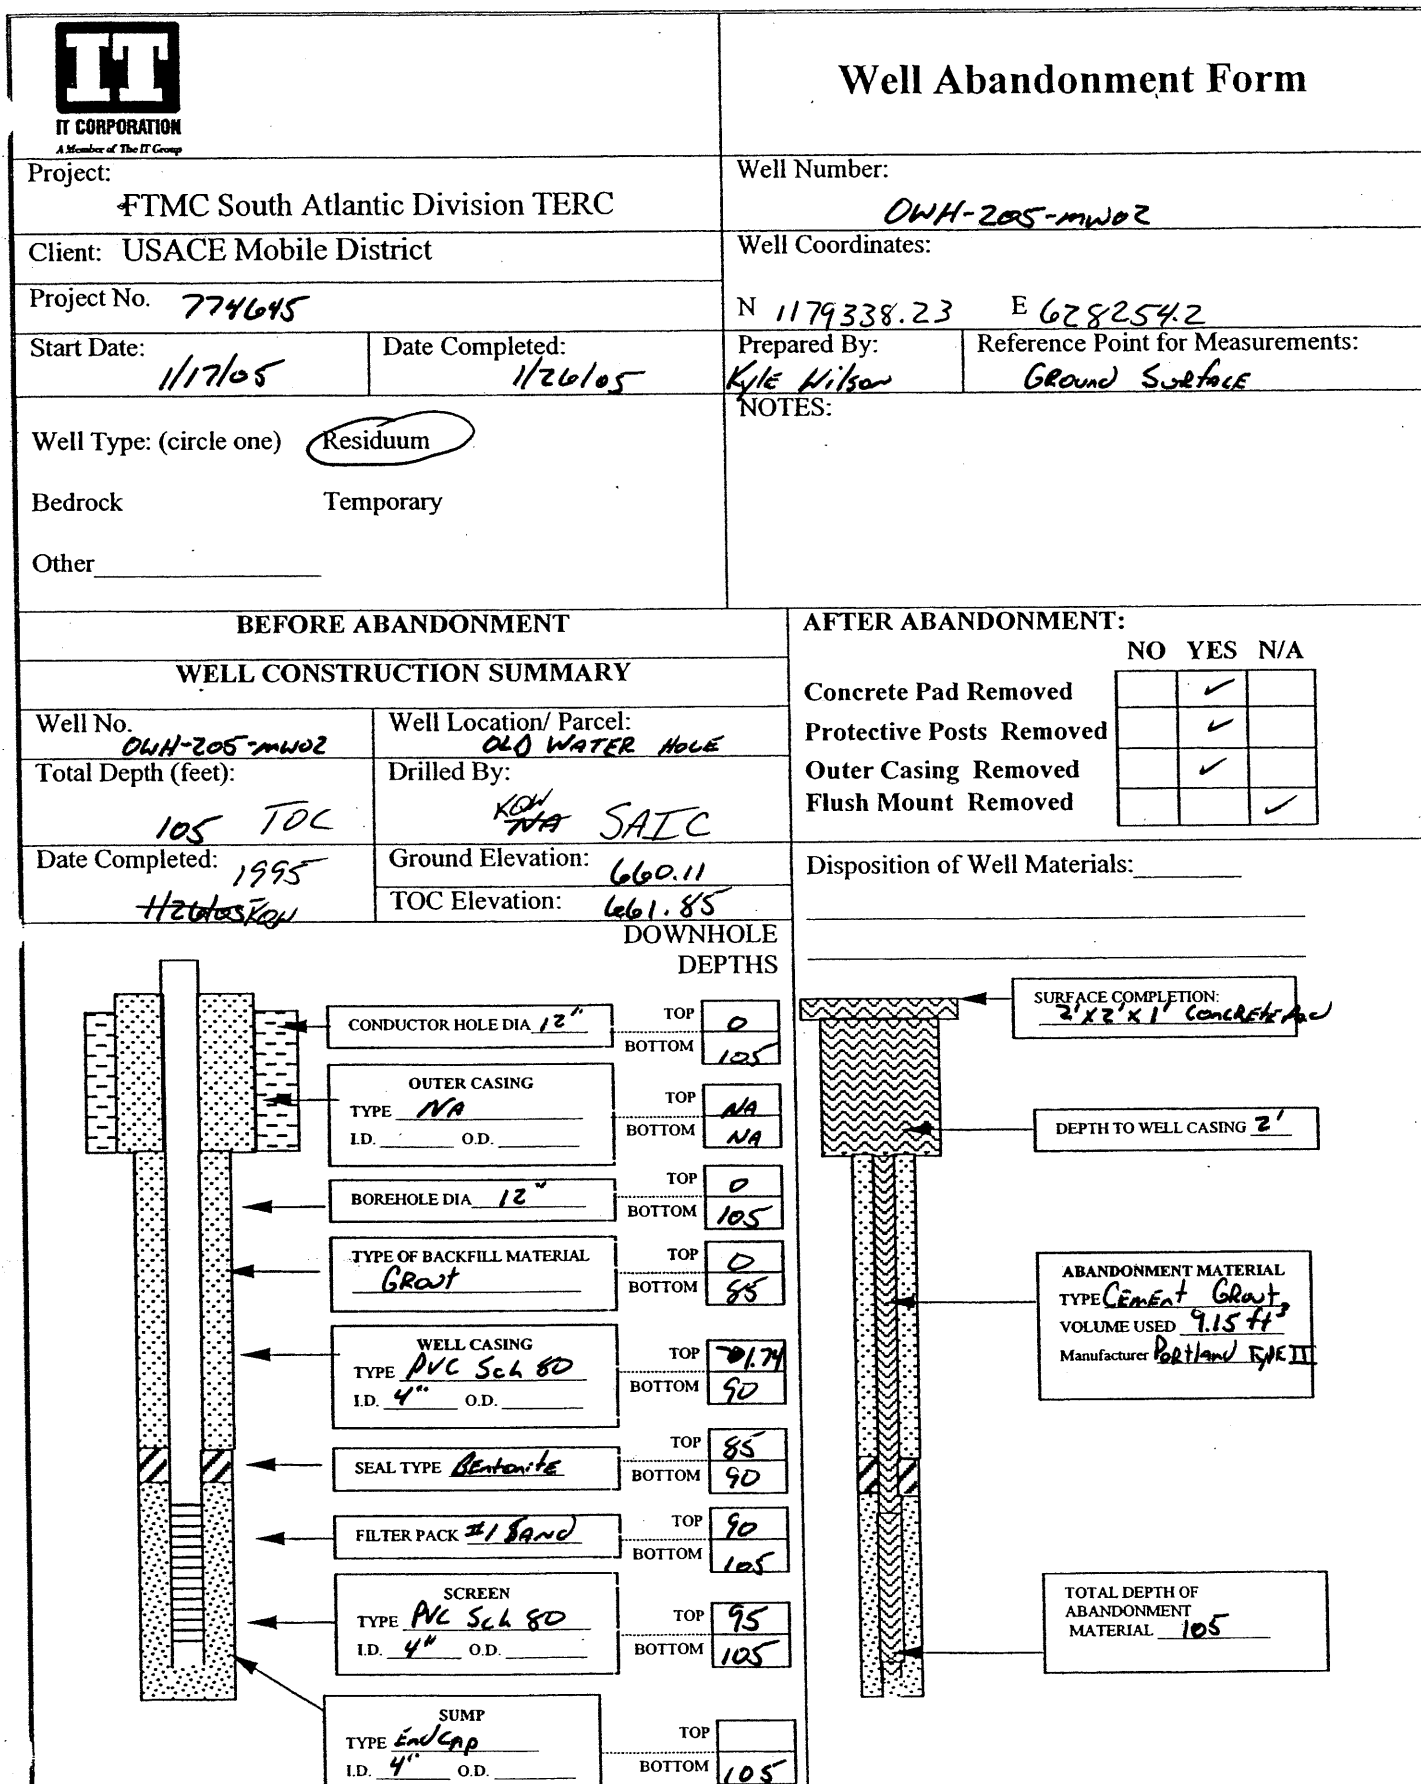 IT
IT CORPORATION
A Member of The IT Group
Well Abandonment Form
Project:
FTMC South Atlantic Division TERC
Well Number:
OWH-205-MW02
Client: USACE Mobile District
Well Coordinates:
Project No. 774645
N 1179338.23 E 628254.2
Start Date:
1/17/05
Date Completed:
1/26/05
Prepared By:
Kyle Wilson
Reference Point for Measurements:
Ground Surface
NOTES:
Well Type: (circle one) Residuum
Bedrock Temporary
Other
BEFORE ABANDONMENT
WELL CONSTRUCTION SUMMARY
Well No.
OWH-205-MW02
Well Location/ Parcel:
OLD WATER HOLE
Total Depth (feet):
105 TOC
Drilled By:
KQW
NA SAIC
Date Completed: 1995
1/26/05 KQW
Ground Elevation: 660.11
TOC Elevation: 661.85
AFTER ABANDONMENT:
NO YES N/A
Concrete Pad Removed ✓
Protective Posts Removed ✓
Outer Casing Removed ✓
Flush Mount Removed ✓
Disposition of Well Materials:
DOWNHOLE
DEPTHS
CONDUCTOR HOLE DIA 12"
TOP 0
BOTTOM 105
OUTER CASING
TYPE NA
I.D. O.D.
TOP NA
BOTTOM NA
BOREHOLE DIA 12"
TOP 0
BOTTOM 105
TYPE OF BACKFILL MATERIAL
Grout
TOP 0
BOTTOM 85
WELL CASING
TYPE PVC Sch 80
I.D. 4" O.D.
TOP 1.74
BOTTOM 90
SEAL TYPE Bentonite
TOP 85
BOTTOM 90
FILTER PACK #1 SAND
TOP 90
BOTTOM 105
SCREEN
TYPE PVC Sch 80
I.D. 4" O.D.
TOP 95
BOTTOM 105
SUMP
TYPE End Cap
I.D. 4" O.D.
TOP
BOTTOM 105
SURFACE COMPLETION:
2'x2'x1' Concrete Pad
DEPTH TO WELL CASING 2'
ABANDONMENT MATERIAL
TYPE Cement Grout
VOLUME USED 9.15 ft³
Manufacturer Portland Type II
TOTAL DEPTH OF
ABANDONMENT
MATERIAL 105